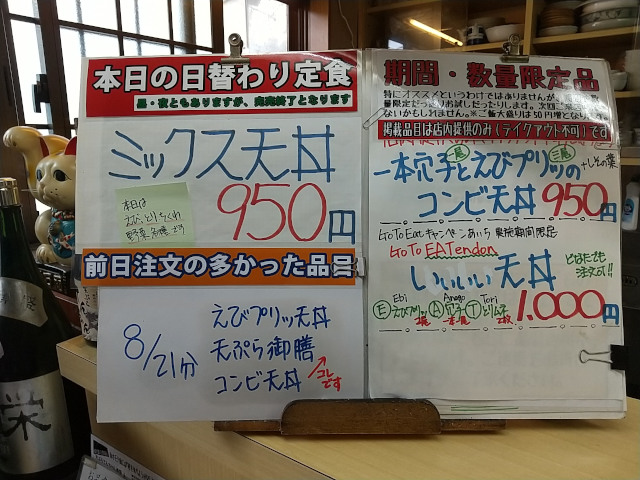 本日の日替わり定食
昼・夜ともありますが、完売終了となります
ミックス天丼
本日は
950円
前日注文の多かった品目
8/21分
えびプリッ天丼
天ぷら御膳
コンビ天丼
コレです
期間・数量限定品
特にオススメというわけではありませんが、
量限定だったりお試しだったりします。次回ご来店
ないかもしれません。※ご飯大盛りは50円増となり
掲載品目は店内提供のみ(テイクアウト不可)です
一本穴子とえびプリッの
一尾
三尾
+しその葉
コンビ天丼950円
GoToEatキャンペーンあいち 東海期間限定
GoTo EATendon
いいいい天丼
どなたでも
注文可!!
Ebi Anago Tori
Ⓔえびプリッ Ⓐ穴子 Ⓣとりム子
2枚
1.000円
栄